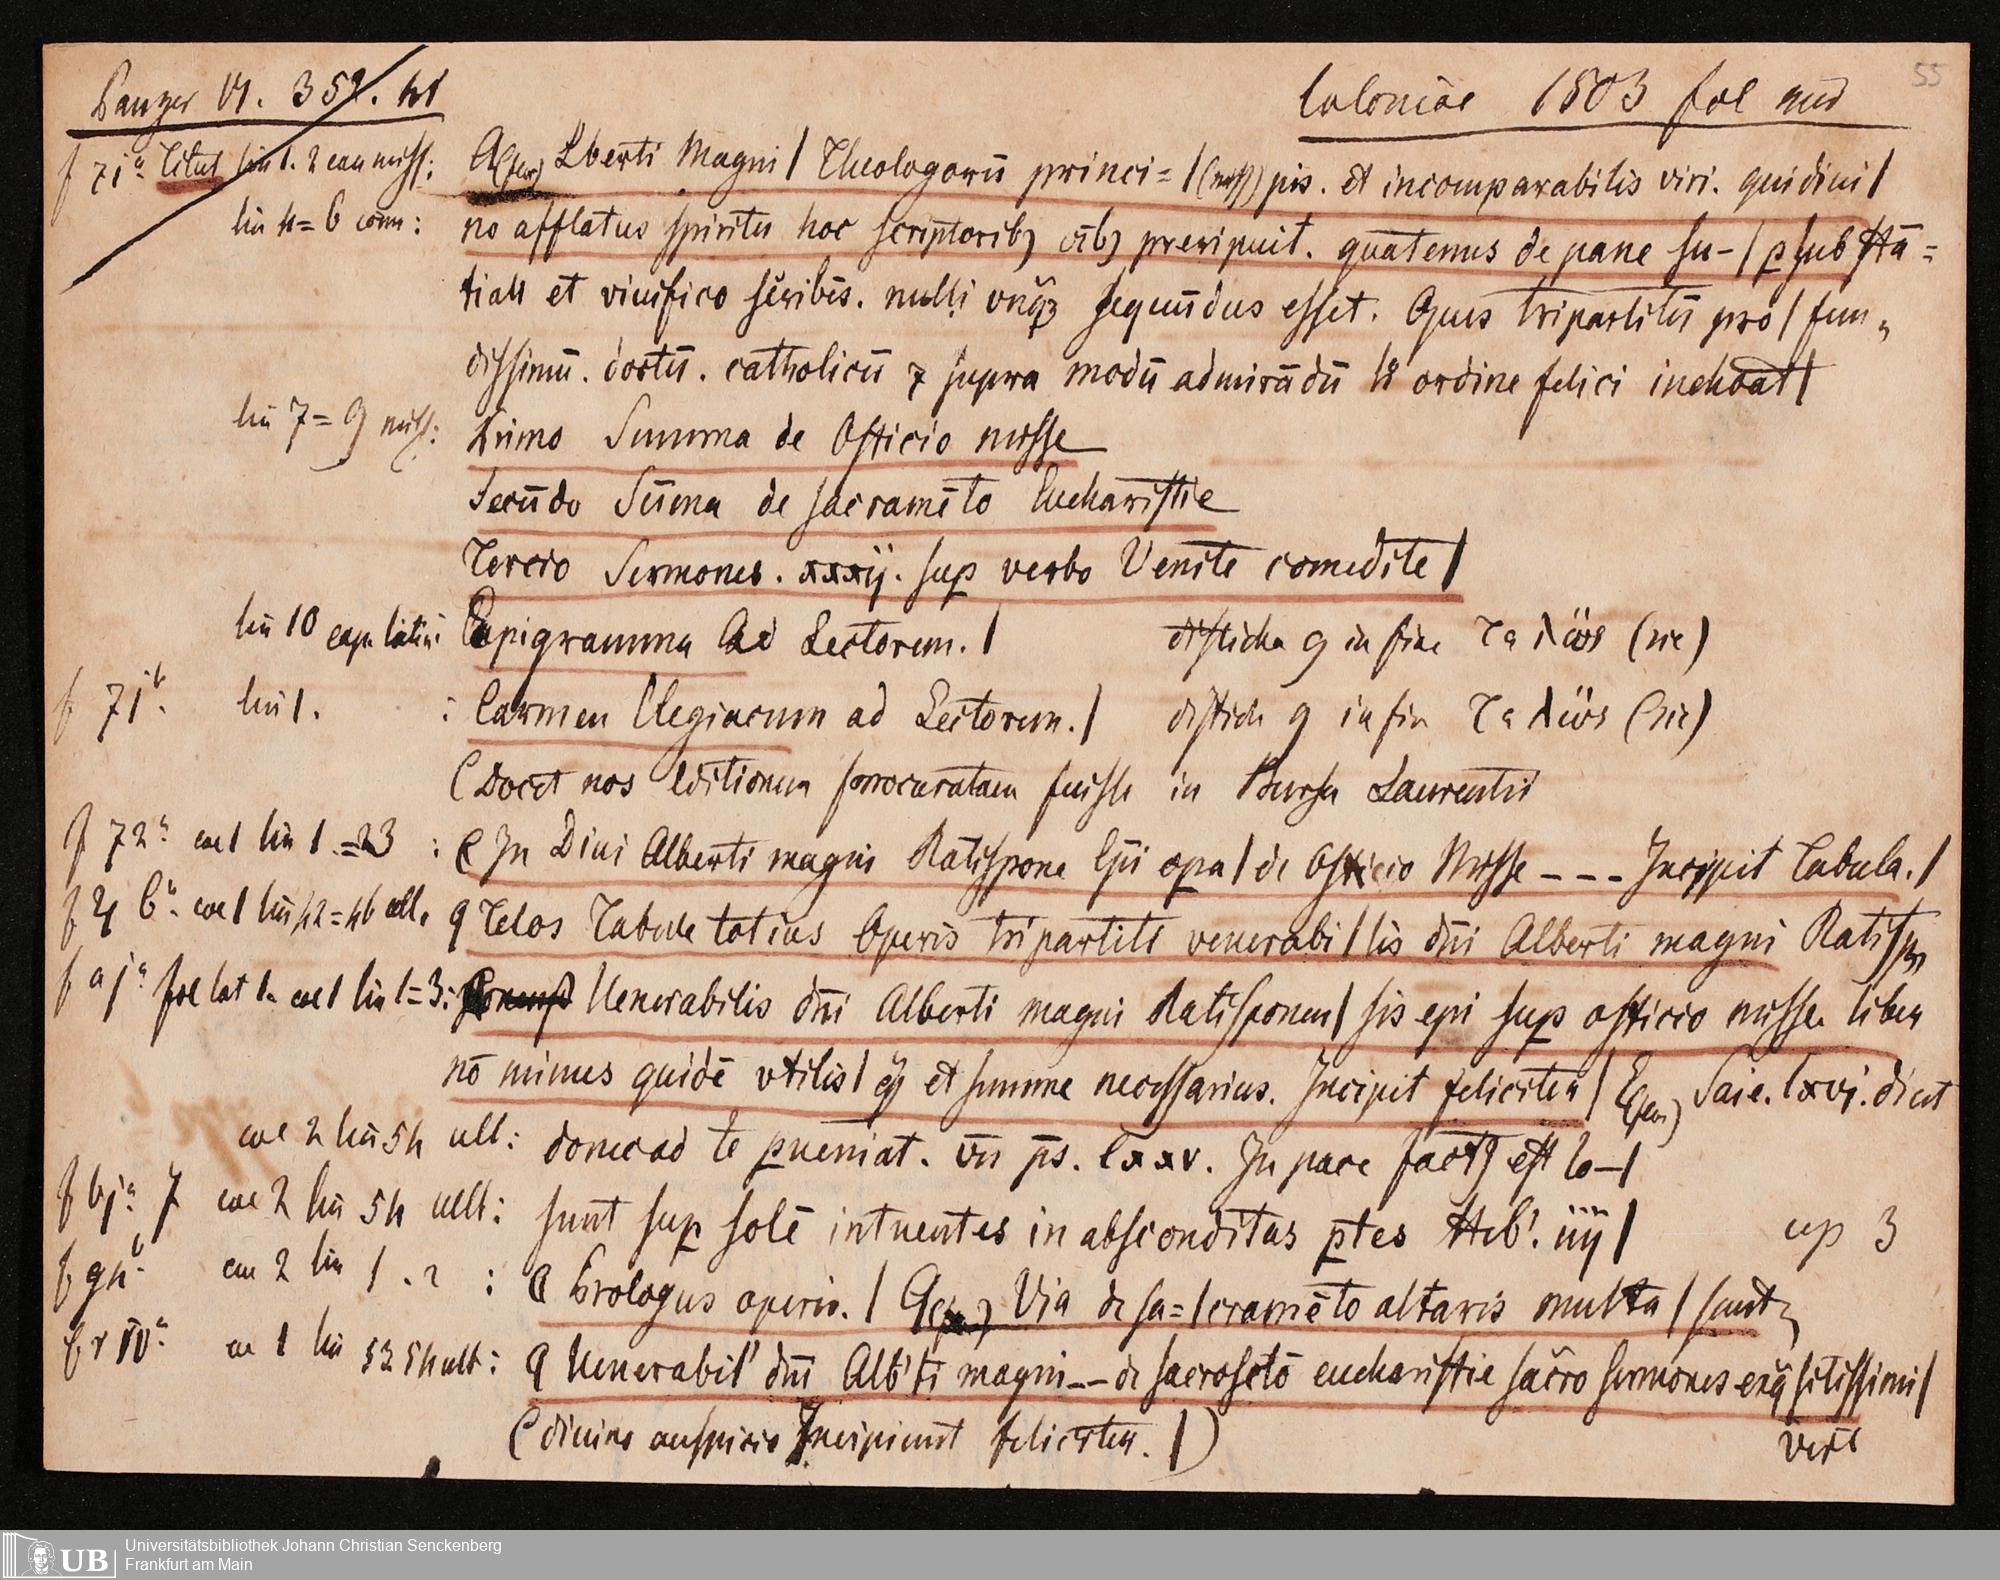 Panzer VI. 352. 41
Coloniae 1503 fol min
55
f 71a Titul lin 1. 2 can miss: A(fer) Lberti Magni | Theologorū princi= | (miss) pis. et incomparabilis viri. qui diui |
lin 4=6 com: no afflatus spiritu hoc scriptoribꝫ oībꝫ preripuit. quatenus de pane su- | ꝑ substā=
tiali et viuifico scribēs. nulli vnꝙꝫ sequūdus esset. Opus tripartitū pro | fun„
dissimū. doctū. catholicū ⁊ supra modū admirādū ordine felici inchoat |
lin 7=9 miss: Primo Summa de Officio misse
Secūdo Sūma de sacramēto Eucharistie
Tercio Sermones. xxxij. suꝑ verbo Venite comedite |
lin 10 Epigramma Ad Lectorem. | disticha 9 in fine Τελως (sic)
f 71b. lin 1. : Carmen Elegiacum ad Lectorem. | distich 9 in fin Τελως (sic)
(Docet nos editionem procuratam fuisse in Bursa Laurentii
f 72a col 1 lin 1.=23 : In Diui Alberti magni Ratispone Epī opa | de Officio Misse --- Incipit Tabula. |
6a. col 1 lin 42=46 ult. Telos Tabule totius Operis tripartiti venerabi | lis dn̄i Alberti magni Ratispn
f aja fol lat 1. col 1 lin 1=3: Uenerabilis dn̄i Alberti magni Ratisponen | sis epi suꝑ officio misse liber
nō minus quidē vtilis | ꝙ et summe necessarius. Incipit feliciter | E(fer) Saie. lxvj. dicit
col 2 lin 54 ult: donec ad te ꝑueniat. vn̄ ps. lxxv. In pace fact9 est lo- |
f bja 7 col 2 lin 54 ult: sunt suꝑ solē intuentes in absconditas ꝑtes Heb'. iiij | cp 3
f g4b. col 2 lin 1.2 : Prologus operis. | Q(fer) Via de sa= | cramēto altaris multa | sunt,
f r IVa. col 1 lin 53 54 ult: Uenerabil' dn̄i Alb'ti magni -- de sacroscto eucharistie sacro sermones exꝗsitissimi |
(diuino auspicio Incipiunt feliciter. |)
vert
Universitätsbibliothek Johann Christian Senckenberg
UB
Frankfurt am Main